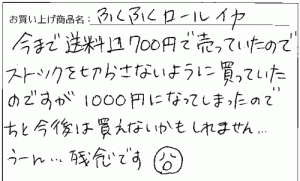 お買い上げ商品名: ふくふくロールイカ
今まで送料込700円で売っていたので
ストックを切らさないように買っていた
のですが1000円になってしまったので
ちと今後は買えないかもしれません…
うーん…残念です